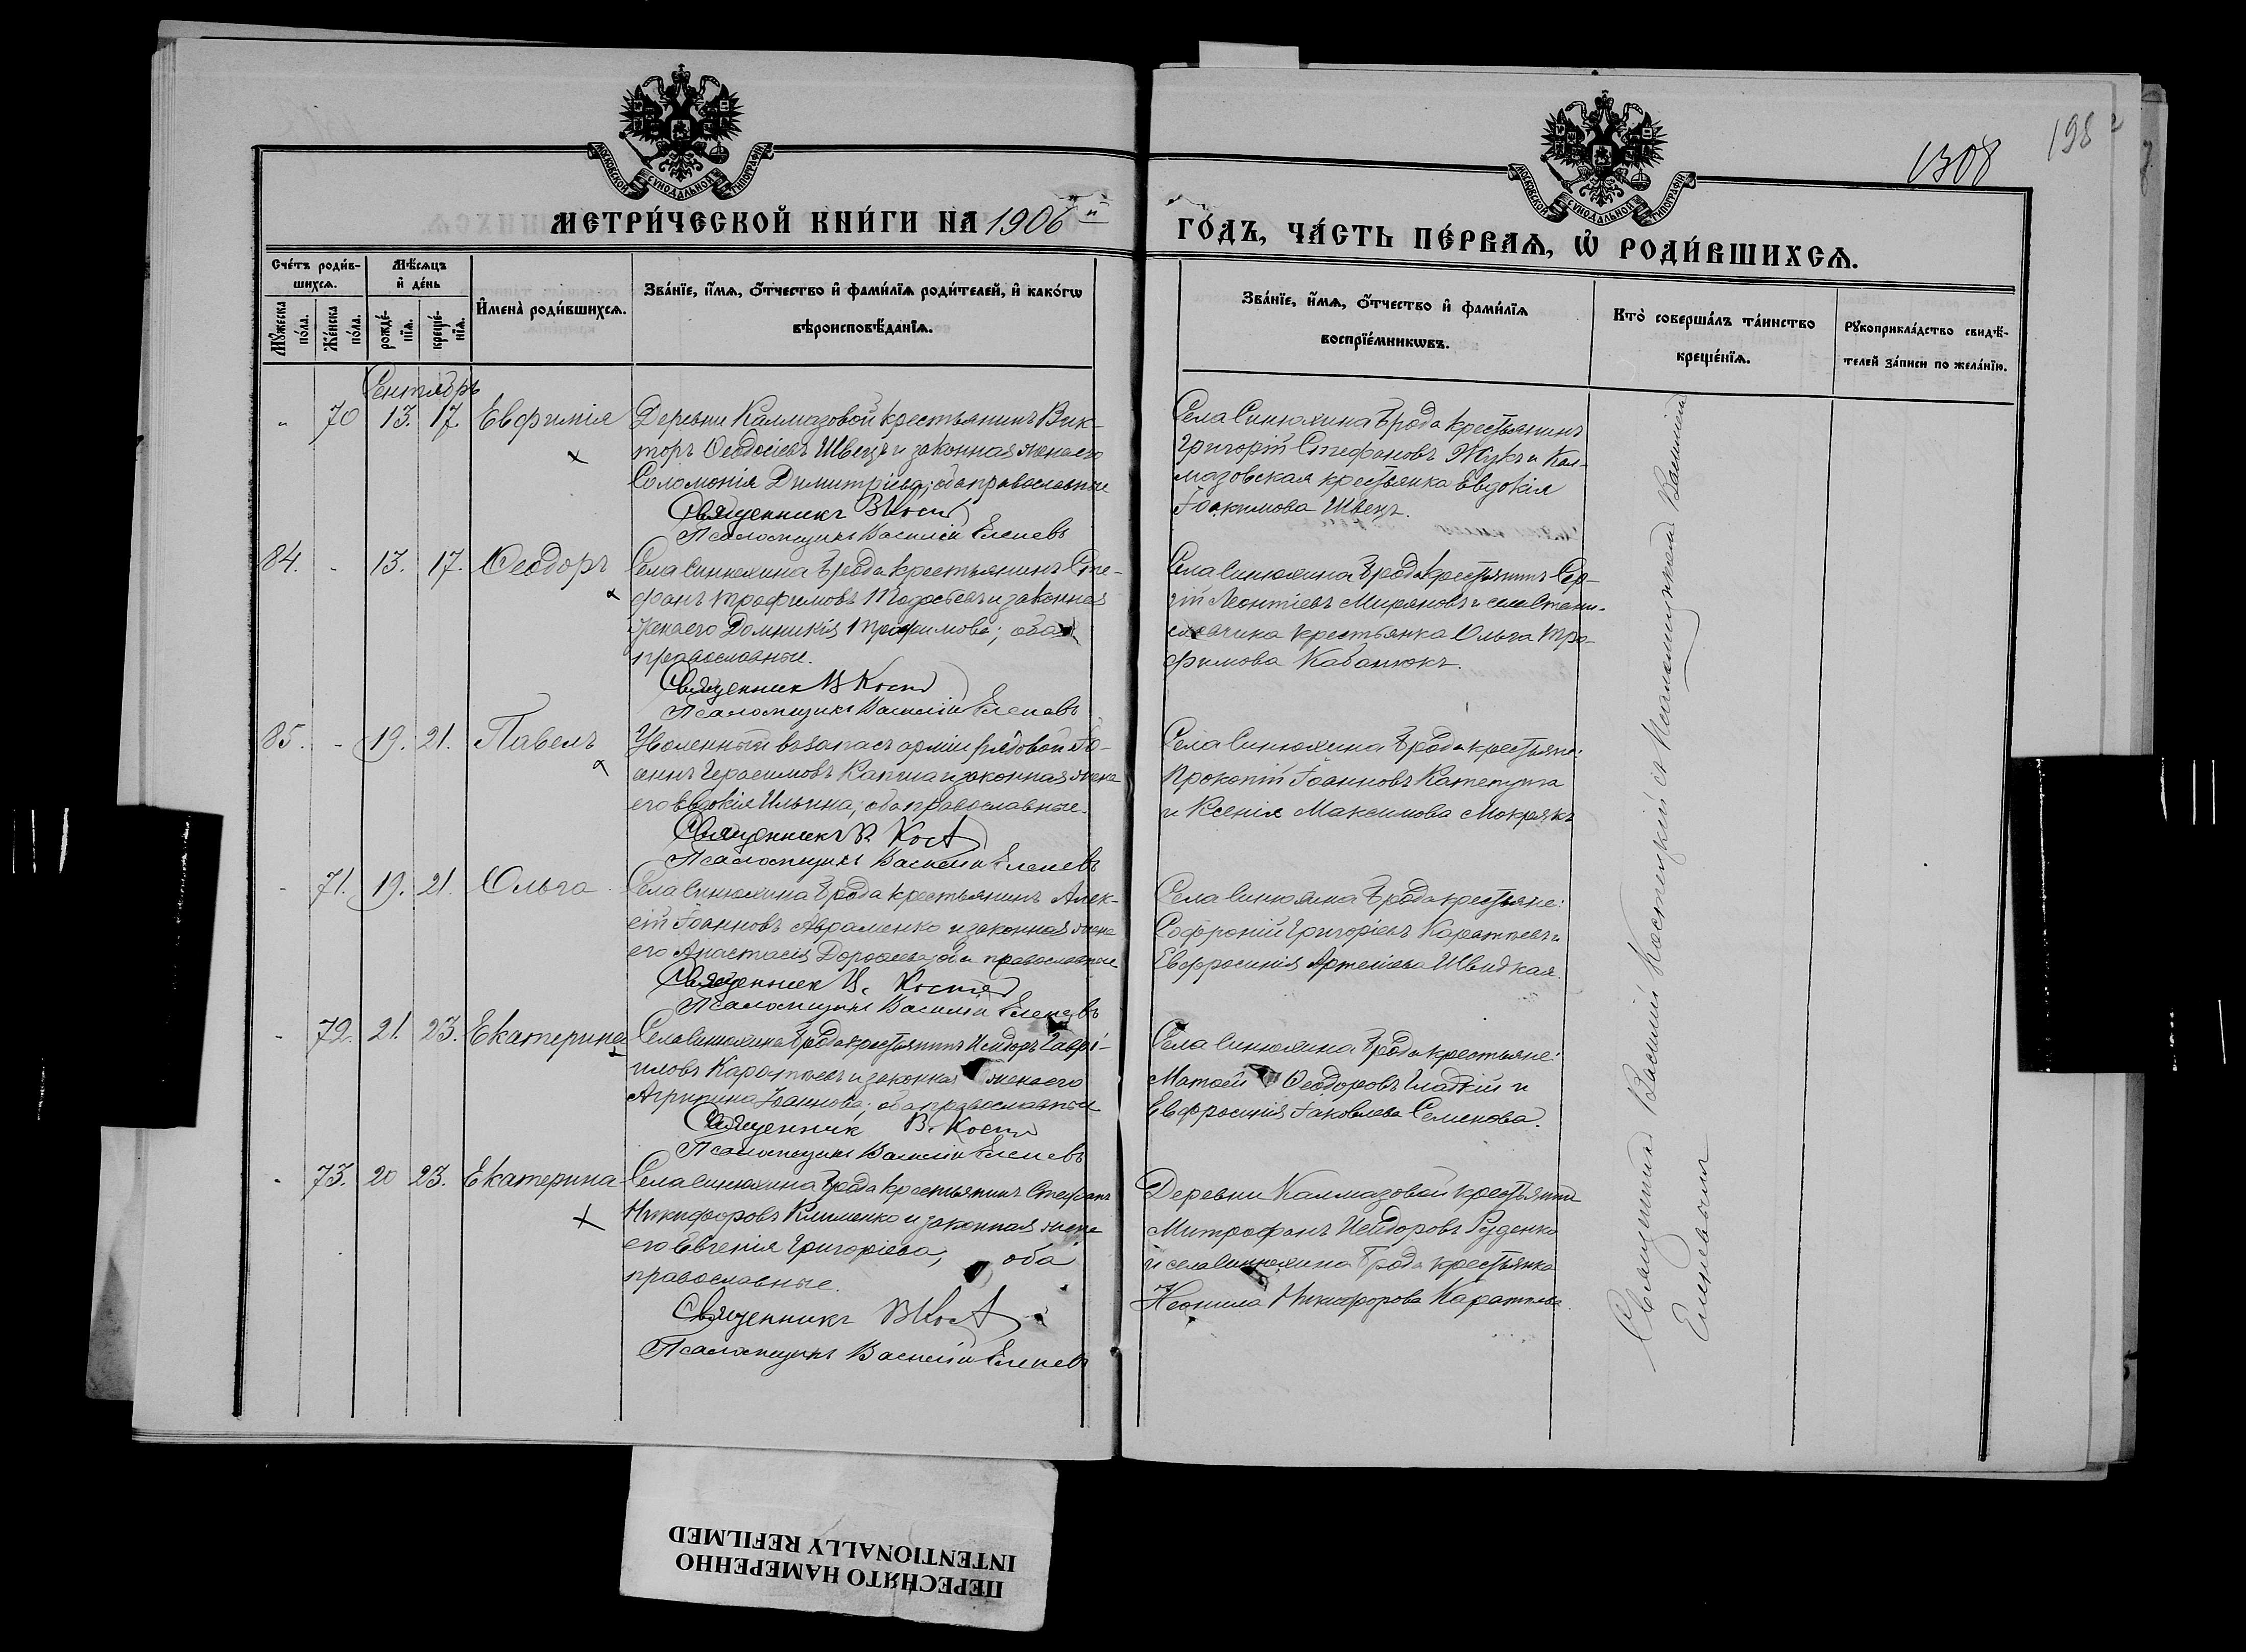 198
1308
МОСКОВСКОЙ СѴНОДАЛЬНОЙ ТИПОГРАФІИ
МОСКОВСКОЙ СѴНОДАЛЬНОЙ ТИПОГРАФІИ
МЕТРИ́ЧЕСКОЙ КНИ́ГИ НА 1906 й
ГО́ДЪ, ЧА́СТЬ ПЕ́РВАѦ, Ѡ҆ РОДИ́ВШИХСѦ.
Сче́тъ роди́в-
шихсѧ.
Мꙋ́жеска по́ла.
Же́нска по́ла.
Мѣ́сѧцъ
и҆ де́нь
рожде́-
нїѧ.
креще́-
нїѧ.
И҆мена̀ роди́вшихсѧ.
Зва́нїе, и҆́мѧ, ѻ҆́тчество и҆ фами́лїѧ роди́телей, и҆ како́гѡ
вѣроисповѣ́данїѧ.
Зва́нїе, и҆́мѧ, ѻ҆́тчество и҆ фами́лїѧ
воспрїе́мникѡвъ.
Кто̀ соверша́лъ та́инство
креще́нїѧ.
Рꙋкоприкла́дство свидѣ́-
телей за́писи по жела́нїю.
Сентябрь
" 70 13. 17. Евфимія
Деревни Калмазовой крестьянинъ Вик-
торъ Ѳеодосіевъ Швецъ и законная жена его
Соломонія Димитріева; оба православные
Священникъ В Кост
Псаломщикъ Василій Еленевъ
Села Синюхина Брода крестьянинъ
Григорій Стефановъ Жукъ и Кал-
мазовская крестьянка Евдокія
Іоакимова Швецъ.
84. - 13. 17. Ѳеодоръ
Села Синюхина Брода крестьянинъ Сте-
фанъ Трофимовъ и законная
жена его Домникія Трофимова; оба
православные.
Священник В Кост
Псаломщикъ Василій Еленевъ
Села Синюхина Брода крестьянинъ Сер-
гій Леонтіевъ Миряновъ и села Стани-
славчика крестьянка Ольга Тро-
фимова Кабанюкъ.
85. - 19. 21. Павелъ
Уволенный въ запасъ арміи рядовой Іо-
аннъ Герасимовъ Капша и законная жена
его Евдокія Ильина; оба православные.
Священникъ В. Кост
Псаломщикъ Василій Еленевъ
Села Синюхина Брода крестьяне:
Прокопій Іоанновъ
и Ксенія Максимова Мокрякъ
- 71. 19. 21. Ольга
Села Синюхина Брода крестьянинъ Алек-
сій Іоанновъ Авраменко и законная жена
его Анастасія Дороѳеева; оба православные
Священник В. Кост
Псаломщикъ Василій Еленевъ
Села Синюхина Брода крестьяне:
Софроній Григоріевъ Каратѣевъ и
Евфросинія Артеміева Швидкая.
- 72. 21. 23. Екатерина
Села Синюхина Брода крестьянинъ Исидоръ Гаврі-
иловъ Каратѣевъ и законная жена его
Агрипина Іоаннова; оба православные
Священник В. Кост
Псаломщикъ Василій Еленевъ
Села Синюхина Брода крестьяне:
Матѳей Ѳеодоровъ Гладкій и
Евфросинія Іаковлева Семенова.
- 73. 20 23. Екатерина
Села Синюхина Брода крестьянинъ Стефанъ
Никифоровъ Клименко и законная жена
его Евгенія Григоріева, оба
православные.
Священникъ В Кост
Псаломщикъ Василій Еленевъ
Деревни Калмазовой крестьянинъ
Митрофанъ Исидоровъ Руденко
и села Синюхина Брода крестьянка
Неонила Никифорова Каратѣева.
Священникъ Василій Костецкій съ Псаломщикомъ Василіемъ
Еленевымъ
ПЕРЕСНЯТО НАМЕРЕННО
INTENTIONALLY REFILMED